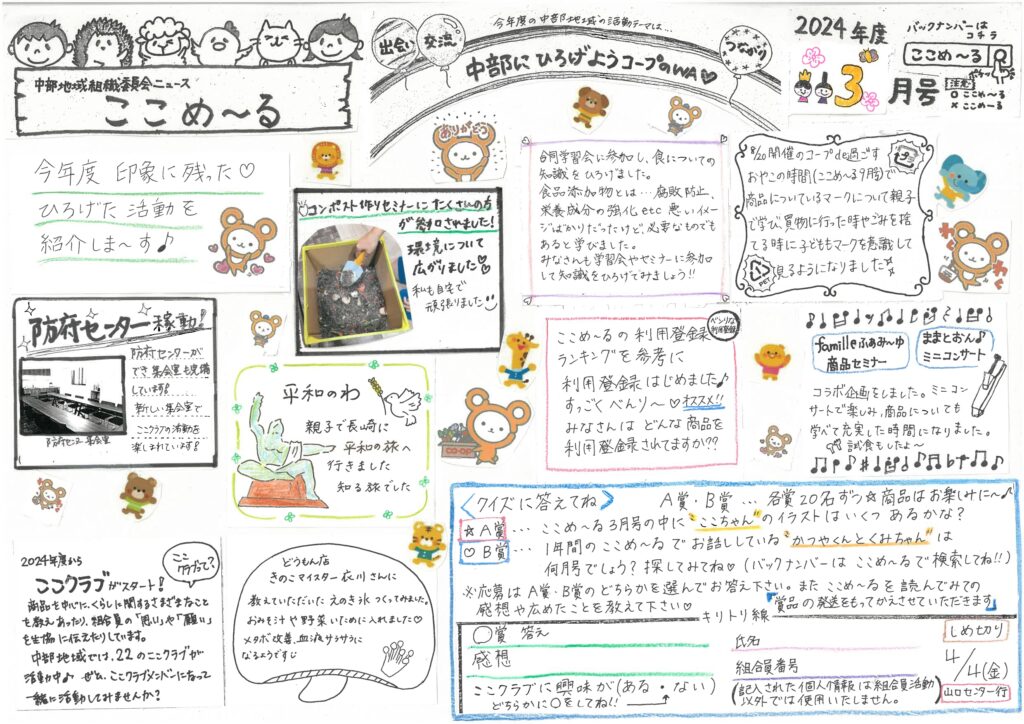 中部地域組織委員会ニュース
ここめ～る
今年度の中部地域の活動テーマは…
出会い
交流
つながり
中部にひろげようコープのWA♡
2024年度
3月号
バックナンバーは
コチラ
ここめ～る
ポチッ
注意
○ここめ～る
×ここめーる
今年度 印象に残った♡
ひろげた 活動を
紹介しま～す♪
ありがとう
コンポスト作りセミナーにたくさんの方
が参加されました!
環境について
広がりました♡
私も自宅で
頑張りました
合同学習会に参加し、食についての
知識をひろげました。
食品添加物とは…腐敗防止、
栄養成分の強化etc 悪いイメー
ジばかりだったけど、必要なものでも
あると学びました。
みなさんも学習会やセミナーに参加
して知識をひろげてみましょう!!
8/20開催のコープde過ごす
おやこの時間(ここめ～る9月)で
商品についているマークについて親子
で学び、買物に行った時やごみを捨
てる時に子どももマークを意識して
見るようになりました
PET
わくわく
防府センター稼動!
防府センターが
でき 集会室も完備
しています♪
新しい集会室で
ここクラブの活動店
楽しまれています!
防府センター集会室
平和のわ
親子で長崎に
平和の旅へ
行きました
知る旅でした
co-op
ベンリな
利用登録
ここめ～るの利用登録
ランキングを参考に
利用登録はじめました♪
すっごくべんり～♡オススメ!!
みなさんは どんな商品を
利用登録されてますか??
familleふぁみ～ゆ
商品セミナー
ままとおん♪
ミニコンサート
コラボ企画をしました。ミニコン
サートで楽しみ、商品についても
学べて充実した時間になりました。
試食もしたよ～
2024年度から
ここクラブがスタート!
ここクラブって?
商品を中心に、くらしに関するさまざまなこと
を教えあったり、組合員の「思い」や「願い」
を生協に伝えたりしています。
中部地域では、22のここクラブが
活動中♪ ぜひ、ここクラブメンバーになって
一緒に活動してみませんか?
どうもん店
きのこマイスター衣川さんに
教えていただいた えのき氷 つくってみました。
おみそ汁や野菜いために入れました♡
メタボ改善、血液サラサラに
なるようです
〈クイズに答えてね〉 A賞・B賞 … 各賞20名ずつ☆商品はお楽しみに～♪
☆A賞 … ここめ～る3月号の中に"ここちゃん"のイラストはいくつ あるかな?
♡B賞 … 1年間のここめ～るでお話ししている"かつやくんとくみちゃん"は
何月号でしょう? 探してみてね♡(バックナンバーは ここめ～るで検索してね!!)
※応募は A賞・B賞のどちらかを選んでお答え下さい。また ここめ～るを読んでみての
感想や広めたことを教えて下さい♡ 「賞品の発送をもってかえさせていただきます」
キリトリ線
○賞 答え
感想
ここクラブに興味が(ある・ない)
どちらかに○をしてね!!
氏名
組合員番号
(記入された個人情報は組合員活動
以外では使用いたしません。)
しめ切り
4/4(金)
山口センター行